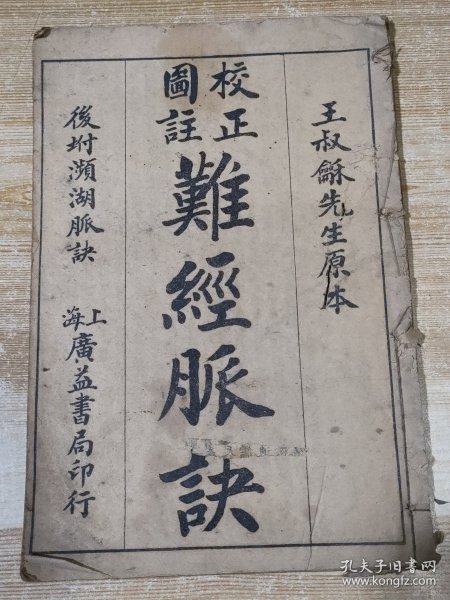 王叔龢先生原本
校正
圖註
難經脈訣
後坿瀕湖脈訣
上海
廣益書局印行
孔夫子旧书网
www.kongfz.com